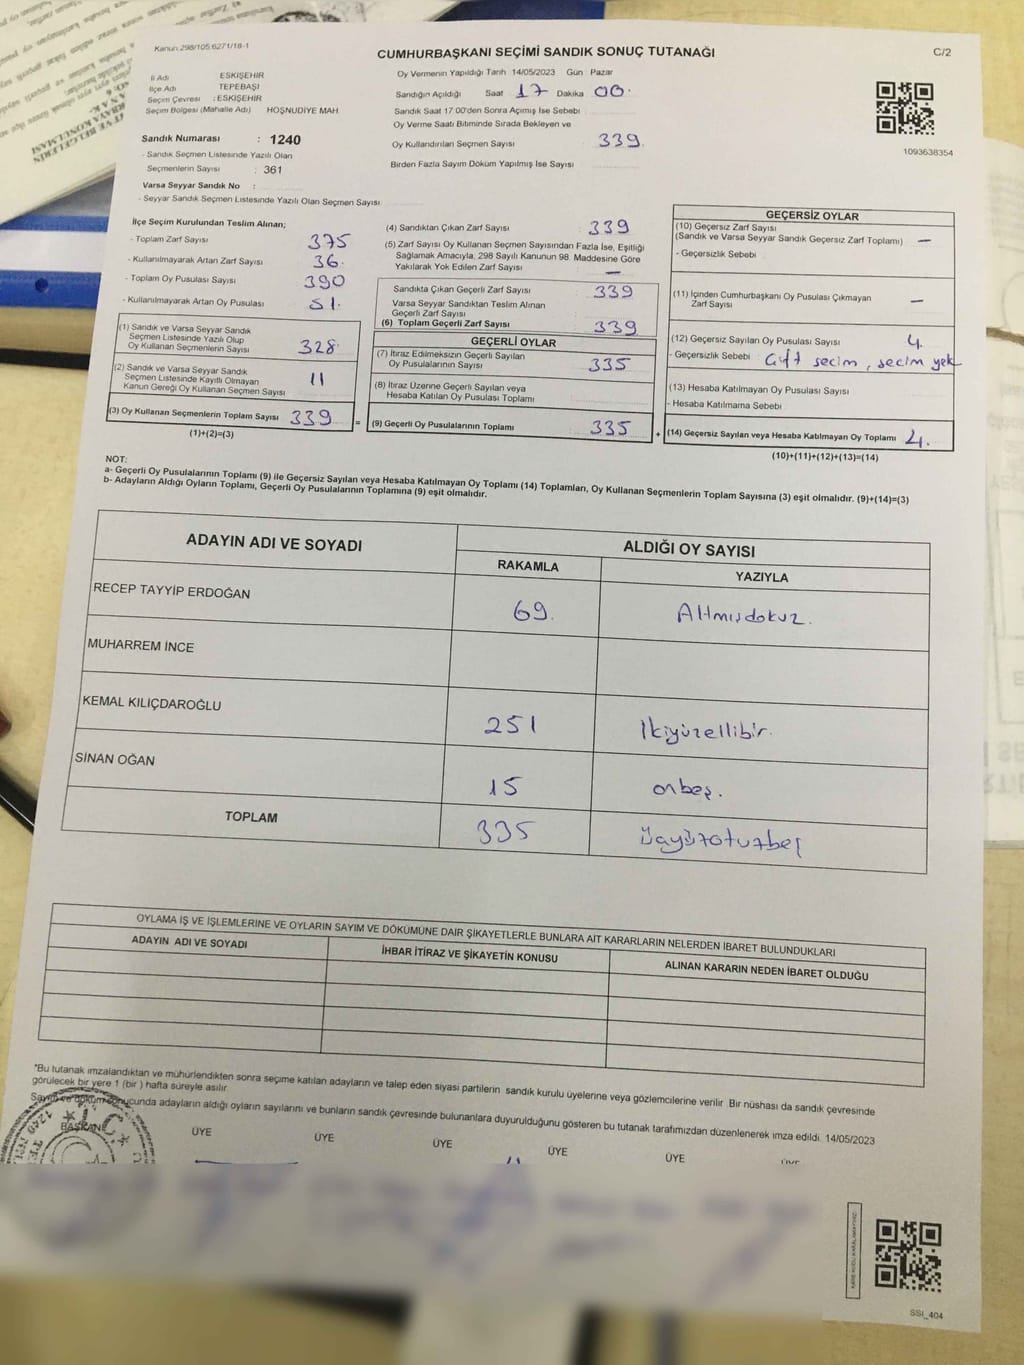 Kanun:298/105:6271/18-1
CUMHURBAŞKANI SEÇİMİ SANDIK SONUÇ TUTANAĞI
C/2
İl Adı ESKİŞEHİR
İlçe Adı TEPEBAŞI
Seçim Çevresi : ESKİŞEHİR
Seçim Bölgesi (Mahalle Adı) HOŞNUDİYE MAH.
Sandık Numarası : 1240
- Sandık Seçmen Listesinde Yazılı Olan
Seçmenlerin Sayısı : 361
Varsa Seyyar Sandık No :
- Seyyar Sandık Seçmen Listesinde Yazılı Olan Seçmen Sayısı
Oy Vermenin Yapıldığı Tarih 14/05/2023 Gün : Pazar
Sandığın Açıldığı Saat 17 Dakika 00.
Sandık Saat 17:00'den Sonra Açımış İse Sebebi
Oy Verme Saati Bitiminde Sırada Bekleyen ve
Oy Kullandırılan Seçmen Sayısı 339.
Birden Fazla Sayım Döküm Yapılmış İse Sayısı
1093638354
İlçe Seçim Kurulundan Teslim Alınan;
- Toplam Zarf Sayısı 375
- Kullanılmayarak Artan Zarf Sayısı 36.
- Toplam Oy Pusulası Sayısı 390
- Kullanılmayarak Artan Oy Pusulası 51.
(1) Sandık ve Varsa Seyyar Sandık
Seçmen Listesinde Yazılı Olup
Oy Kullanan Seçmenlerin Sayısı 328.
(2) Sandık ve Varsa Seyyar Sandık
Seçmen Listesinde Kayıtlı Olmayan
Kanun Gereği Oy Kullanan Seçmen Sayısı 11
(3) Oy Kullanan Seçmenlerin Toplam Sayısı 339 =
(1)+(2)=(3)
(4) Sandıktan Çıkan Zarf Sayısı : 339
(5) Zarf Sayısı Oy Kullanan Seçmen Sayısından Fazla İse, Eşitliği
Sağlamak Amacıyla, 298 Sayılı Kanunun 98. Maddesine Göre
Yakılarak Yok Edilen Zarf Sayısı —
Sandıkta Çıkan Geçerli Zarf Sayısı : 339
Varsa Seyyar Sandıktan Teslim Alınan
Geçerli Zarf Sayısı
(6) Toplam Geçerli Zarf Sayısı 339
GEÇERLİ OYLAR
(7) İtiraz Edilmeksizin Geçerli Sayılan
Oy Pusulalarının Sayısı : 335
(8) İtiraz Üzerine Geçerli Sayılan veya
Hesaba Katılan Oy Pusulası Toplamı
(9) Geçerli Oy Pusulalarının Toplamı : 335 +
GEÇERSİZ OYLAR
(10) Geçersiz Zarf Sayısı
(Sandık ve Varsa Seyyar Sandık Geçersiz Zarf Toplamı) —
- Geçersizlik Sebebi
(11) İçinden Cumhurbaşkanı Oy Pusulası Çıkmayan
Zarf Sayısı —
(12) Geçersiz Sayılan Oy Pusulası Sayısı 4.
- Geçersizlik Sebebi : Çift seçim, seçim yok
(13) Hesaba Katılmayan Oy Pusulası Sayısı
- Hesaba Katılmama Sebebi
(14) Geçersiz Sayılan veya Hesaba Katılmayan Oy Toplamı 4.
(10)+(11)+(12)+(13)=(14)
NOT:
a- Geçerli Oy Pusulalarının Toplamı (9) ile Geçersiz Sayılan veya Hesaba Katılmayan Oy Toplamı (14) Toplamları, Oy Kullanan Seçmenlerin Toplam Sayısına (3) eşit olmalıdır. (9)+(14)=(3)
b- Adayların Aldığı Oyların Toplamı, Geçerli Oy Pusulalarının Toplamına (9) eşit olmalıdır.
ADAYIN ADI VE SOYADI
ALDIĞI OY SAYISI
RAKAMLA YAZIYLA
RECEP TAYYİP ERDOĞAN 69. Altmışdokuz.
MUHARREM İNCE
KEMAL KILIÇDAROĞLU 251 İkiyüzellibir.
SİNAN OĞAN 15 onbeş.
TOPLAM 335 Üçyüzotuzbeş
OYLAMA İŞ VE İŞLEMLERİNE VE OYLARIN SAYIM VE DÖKÜMÜNE DAİR ŞİKAYETLERLE BUNLARA AİT KARARLARIN NELERDEN İBARET BULUNDUKLARI
ADAYIN ADI VE SOYADI İHBAR İTİRAZ VE ŞİKAYETİN KONUSU ALINAN KARARIN NEDEN İBARET OLDUĞU
*Bu tutanak imzalandıktan ve mühürlendikten sonra seçime katılan adayların ve talep eden siyasi partilerin sandık kurulu üyelerine veya gözlemcilerine verilir. Bir nüshası da sandık çevresinde
görülecek bir yere 1 (bir) hafta süreyle asılır.
Sayım ve döküm sonucunda adayların aldığı oyların sayılarını ve bunların sandık çevresinde bulunanlara duyurulduğunu gösteren bu tutanak tarafımızdan düzenlenerek imza edildi. 14/05/2023
BAŞKAN ÜYE ÜYE ÜYE ÜYE ÜYE ÜYE
SSI_404